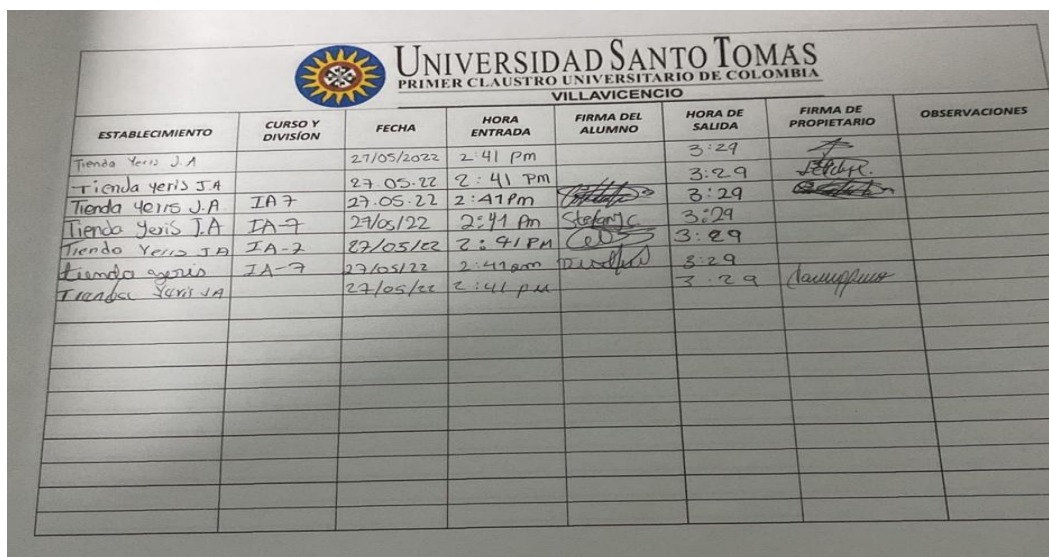 UNIVERSIDAD SANTO TOMÁS
PRIMER CLAUSTRO UNIVERSITARIO DE COLOMBIA
VILLAVICENCIO
ESTABLECIMIENTO CURSO Y DIVISÍON FECHA HORA ENTRADA FIRMA DEL ALUMNO HORA DE SALIDA FIRMA DE PROPIETARIO OBSERVACIONES
Tienda Yeris J.A 27/05/2022 2:41 pm 3:29
Tienda yeris J.A 27.05.22 2:41 PM 3:29
Tienda Yeris J.A. IA7 27.05.22 2:41Pm 3:29
Tienda Yeris J.A IA-7 27/05/22 2:41 Pm 3:29
Tienda Yeris JA IA-7 27/05/22 2:41PM 3:29
tienda yeris IA-7 27/05/22 2:41pm 3:29
Tienda Yeris JA 27/05/22 2:41 pm 3:29